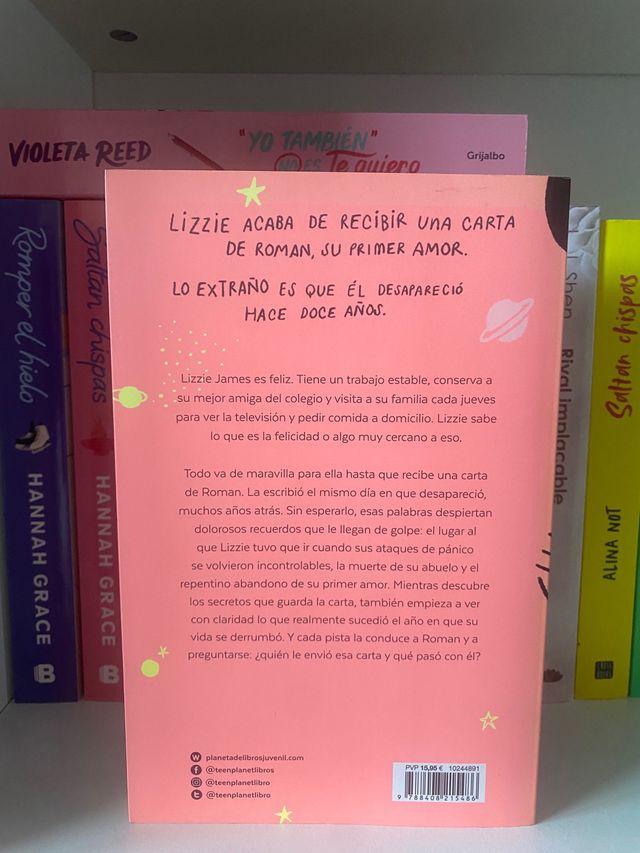 VIOLETA REED
"YO TAMBIÉN"
NO ES Te quiero
Grijalbo
Romper el hielo
HANNAH GRACE
B
Saltan chispas
HANNAH GRACE
B
LIZZIE ACABA DE RECIBIR UNA CARTA
DE ROMAN, SU PRIMER AMOR.
LO EXTRAÑO ES QUE ÉL DESAPARECIÓ
HACE DOCE AÑOS.
Lizzie James es feliz. Tiene un trabajo estable, conserva a
su mejor amiga del colegio y visita a su familia cada jueves
para ver la televisión y pedir comida a domicilio. Lizzie sabe
lo que es la felicidad o algo muy cercano a eso.
Todo va de maravilla para ella hasta que recibe una carta
de Roman. La escribió el mismo día en que desapareció,
muchos años atrás. Sin esperarlo, esas palabras despiertan
dolorosos recuerdos que le llegan de golpe: el lugar al
que Lizzie tuvo que ir cuando sus ataques de pánico
se volvieron incontrolables, la muerte de su abuelo y el
repentino abandono de su primer amor. Mientras descubre
los secretos que guarda la carta, también empieza a ver
con claridad lo que realmente sucedió el año en que su
vida se derrumbó. Y cada pista la conduce a Roman y a
preguntarse: ¿quién le envió esa carta y qué pasó con él?
planetadelibrosjuvenil.com
@teenplanetlibros
@teenplanetlibro
@teenplanetlibro
PVP 15,95 € 10244891
9 788408 215486
Shen
Rival implacable
Saltan chispas
ALINA NOT